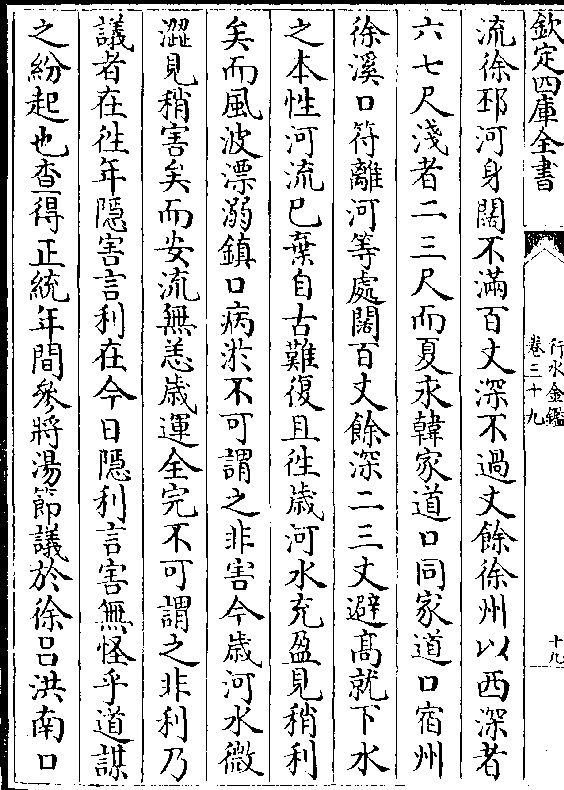 欽定四庫全書
行水金鑑
卷三十九
十九
流徐邳河身闊不滿百丈深不過丈餘徐州以西深者
六七尺淺者二三尺而夏永韓家道口同家道口宿州
徐溪口符離河等處闊百丈餘深二三丈避髙就下水
之本性河流已棄自古難復且徃歳河水充盈見稍利
矣而風波漂溺鎮口病淤不可謂之非害今歳河水微
澀見稍害矣而安流無恙歳運全完不可謂之非利乃
議者在徃年隠害言利在今日隠利言害無怪乎道謀
之紛起也查得正統年間參將湯節議於徐吕洪南口